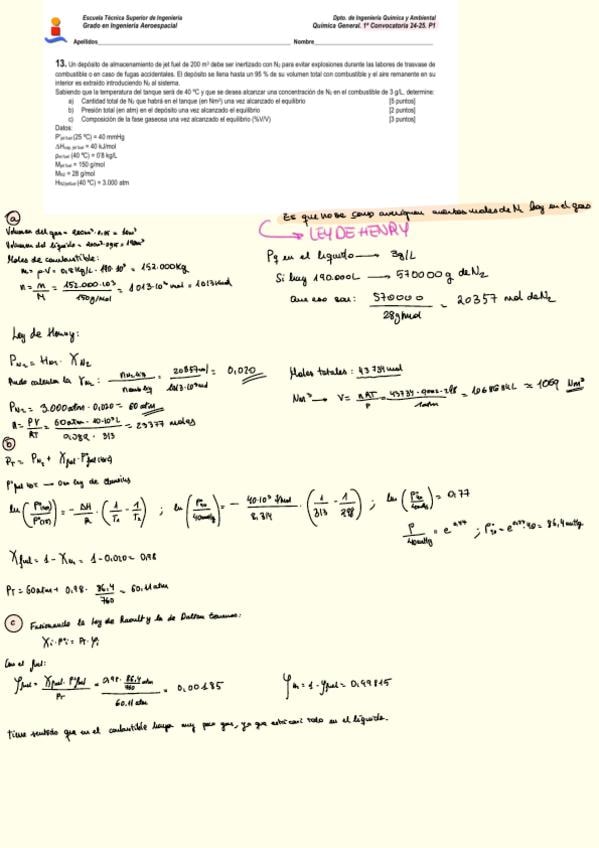 Escuela Técnica Superior de Ingeniería
Grado en Ingeniería Aeroespacial
Dpto. de Ingeniería Química y Ambiental
Química General. 1ª Convocatoria 24-25. P1
Apellidos
Nombre
13. Un depósito de almacenamiento de jet fuel de 200 m³ debe ser inertizado con N₂ para evitar explosiones durante las labores de trasvase de
combustible o en caso de fugas accidentales. El depósito se llena hasta un 95 % de su volumen total con combustible y el aire remanente en su
interior es extraído introduciendo N₂ al sistema.
Sabiendo que la temperatura del tanque será de 40 ºC y que se desea alcanzar una concentración de N₂ en el combustible de 3 g/L, determine:
a) Cantidad total de N₂ que habrá en el tanque (en Nm³) una vez alcanzado el equilibrio [5 puntos]
b) Presión total (en atm) en el depósito una vez alcanzado el equilibrio [2 puntos]
c) Composición de la fase gaseosa una vez alcanzado el equilibrio (%V/V) [3 puntos]
Datos:
Pº jet fuel (25 ºC) = 40 mmHg
ΔH vap, jet fuel = 40 kJ/mol
ρ jet fuel (40 ºC) = 0'8 kg/L
M jet fuel = 150 g/mol
M N2 = 28 g/mol
H N2/jet fuel (40 ºC) = 3.000 atm
a
Es que no se como averiguan cuantos moles de N hay en el gas
LEY DE HENRY
Volumen del gas = 200m³ · 0.05 = 10m³
Volumen del líquido = 200m³ · 0.95 = 190m³
Moles de combustible:
m = ρ·V = 0,8 kg/L · 190·10³ = 152.000 kg
n = m/M = 152.000·10³/150 g/mol = 1013·10³ mol = 1013 kmol
en el líquido → 3g/L
Si hay 190.000L → 570000 g de N₂
Que eso son: 570000/28 g/mol = 20357 mol de N₂
Ley de Henry:
P N₂ = H N₂ · X N₂
Puedo calcular la X N₂ = 20357 mol/1013·10³ mol = 0,020
Moles totales: 43734 mol
P N₂ = 3.000 atm · 0,020 = 60 atm
n = PV/RT = 60 atm · 10·10³ L/0,082 · 313 = 23377 moles
Nm³ → V = nRT/P = 1069 Nm³
b
P T = P N₂ + X fuel · Pº fuel (40ºC)
ln(P(T₂)/P(T₁)) = -ΔH/R · (1/T₂ - 1/T₁) ; ln(P 40/40mmHg) = - 40·10³ J/mol/8,314 · (1/313 - 1/298) ; = 0,77
P/40mmHg = e^0,77 ; = e^0,77 · 40 = 86,4 mmHg
X fuel = 1 - X N₂ = 1 - 0,020 = 0,98
P T = 60 atm + 0,98 · 86,4/760 = 60,11 atm
c Fusionando la ley de Raoult y la de Dalton tenemos:
Xi · Pºi = P T · yi
Con el fuel:
y fuel = X fuel · Pº fuel/P T = 0,98 · 86,4/760 atm/60,11 atm = 0,00185
y N₂ = 1 - y fuel = 0,99815
tiene sentido que en el combustible haya muy poco gas, ya que está casi todo en el líquido.